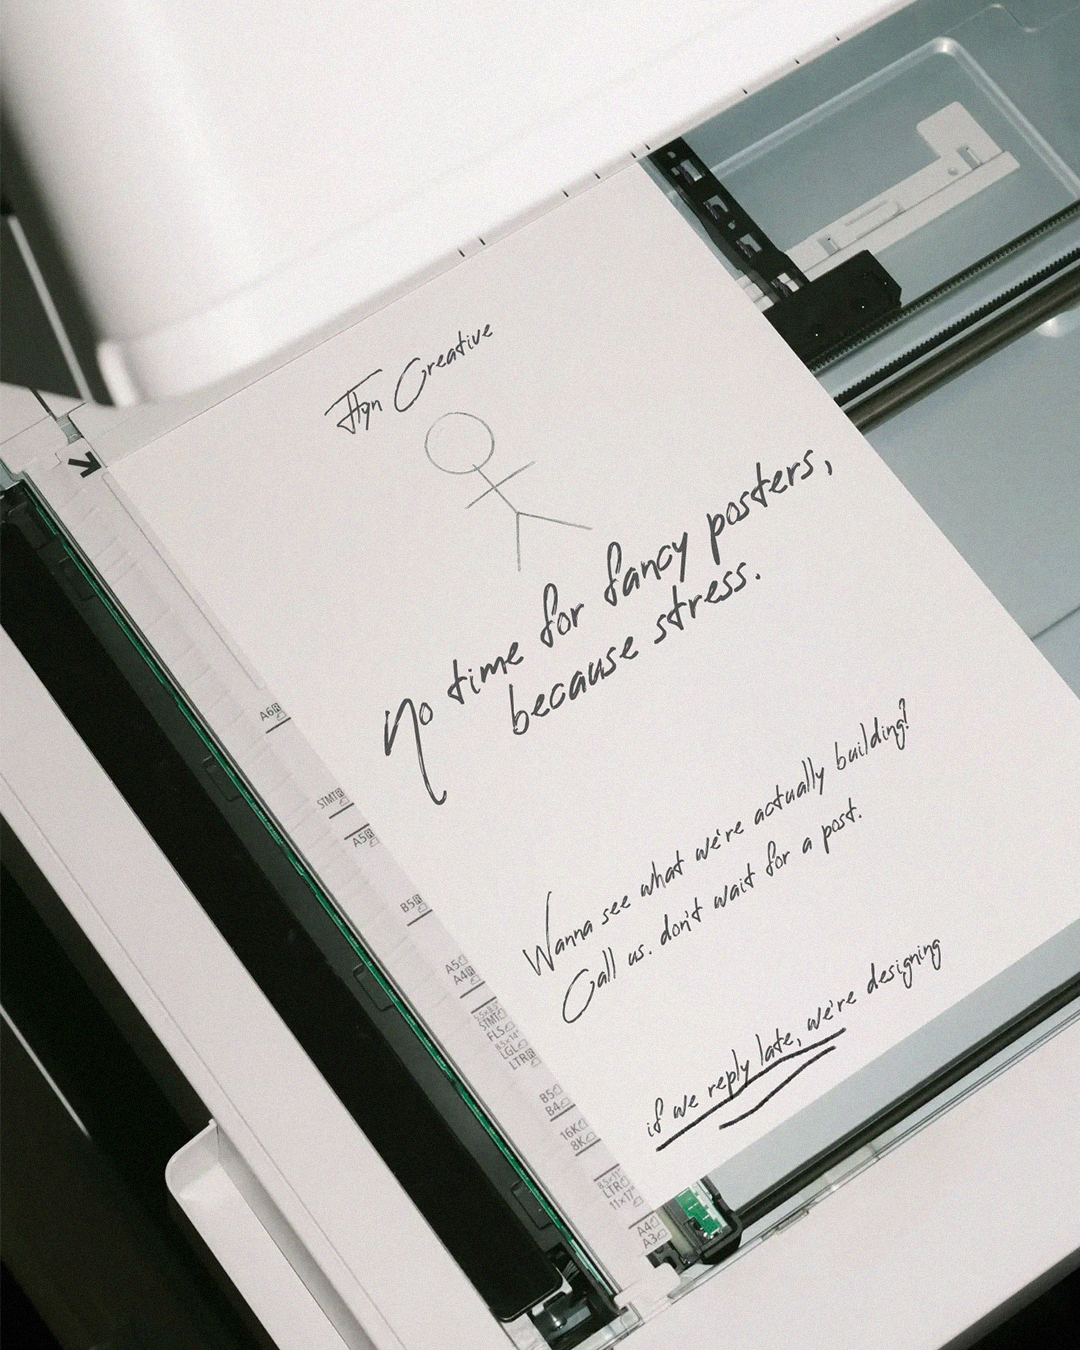 Flyn Creative
No time for fancy posters,
because stress.
Wanna see what we're actually building?
Call us. don't wait for a post.
if we reply late, we're designing
A6
STMT
A5
B5
A5
A4
5.5x8.5"
STMT
FLS
8.5x14"
LGL
LTR
B5
B4
16K
8K
8.5x11"
LTR
11x17"
A4
A3